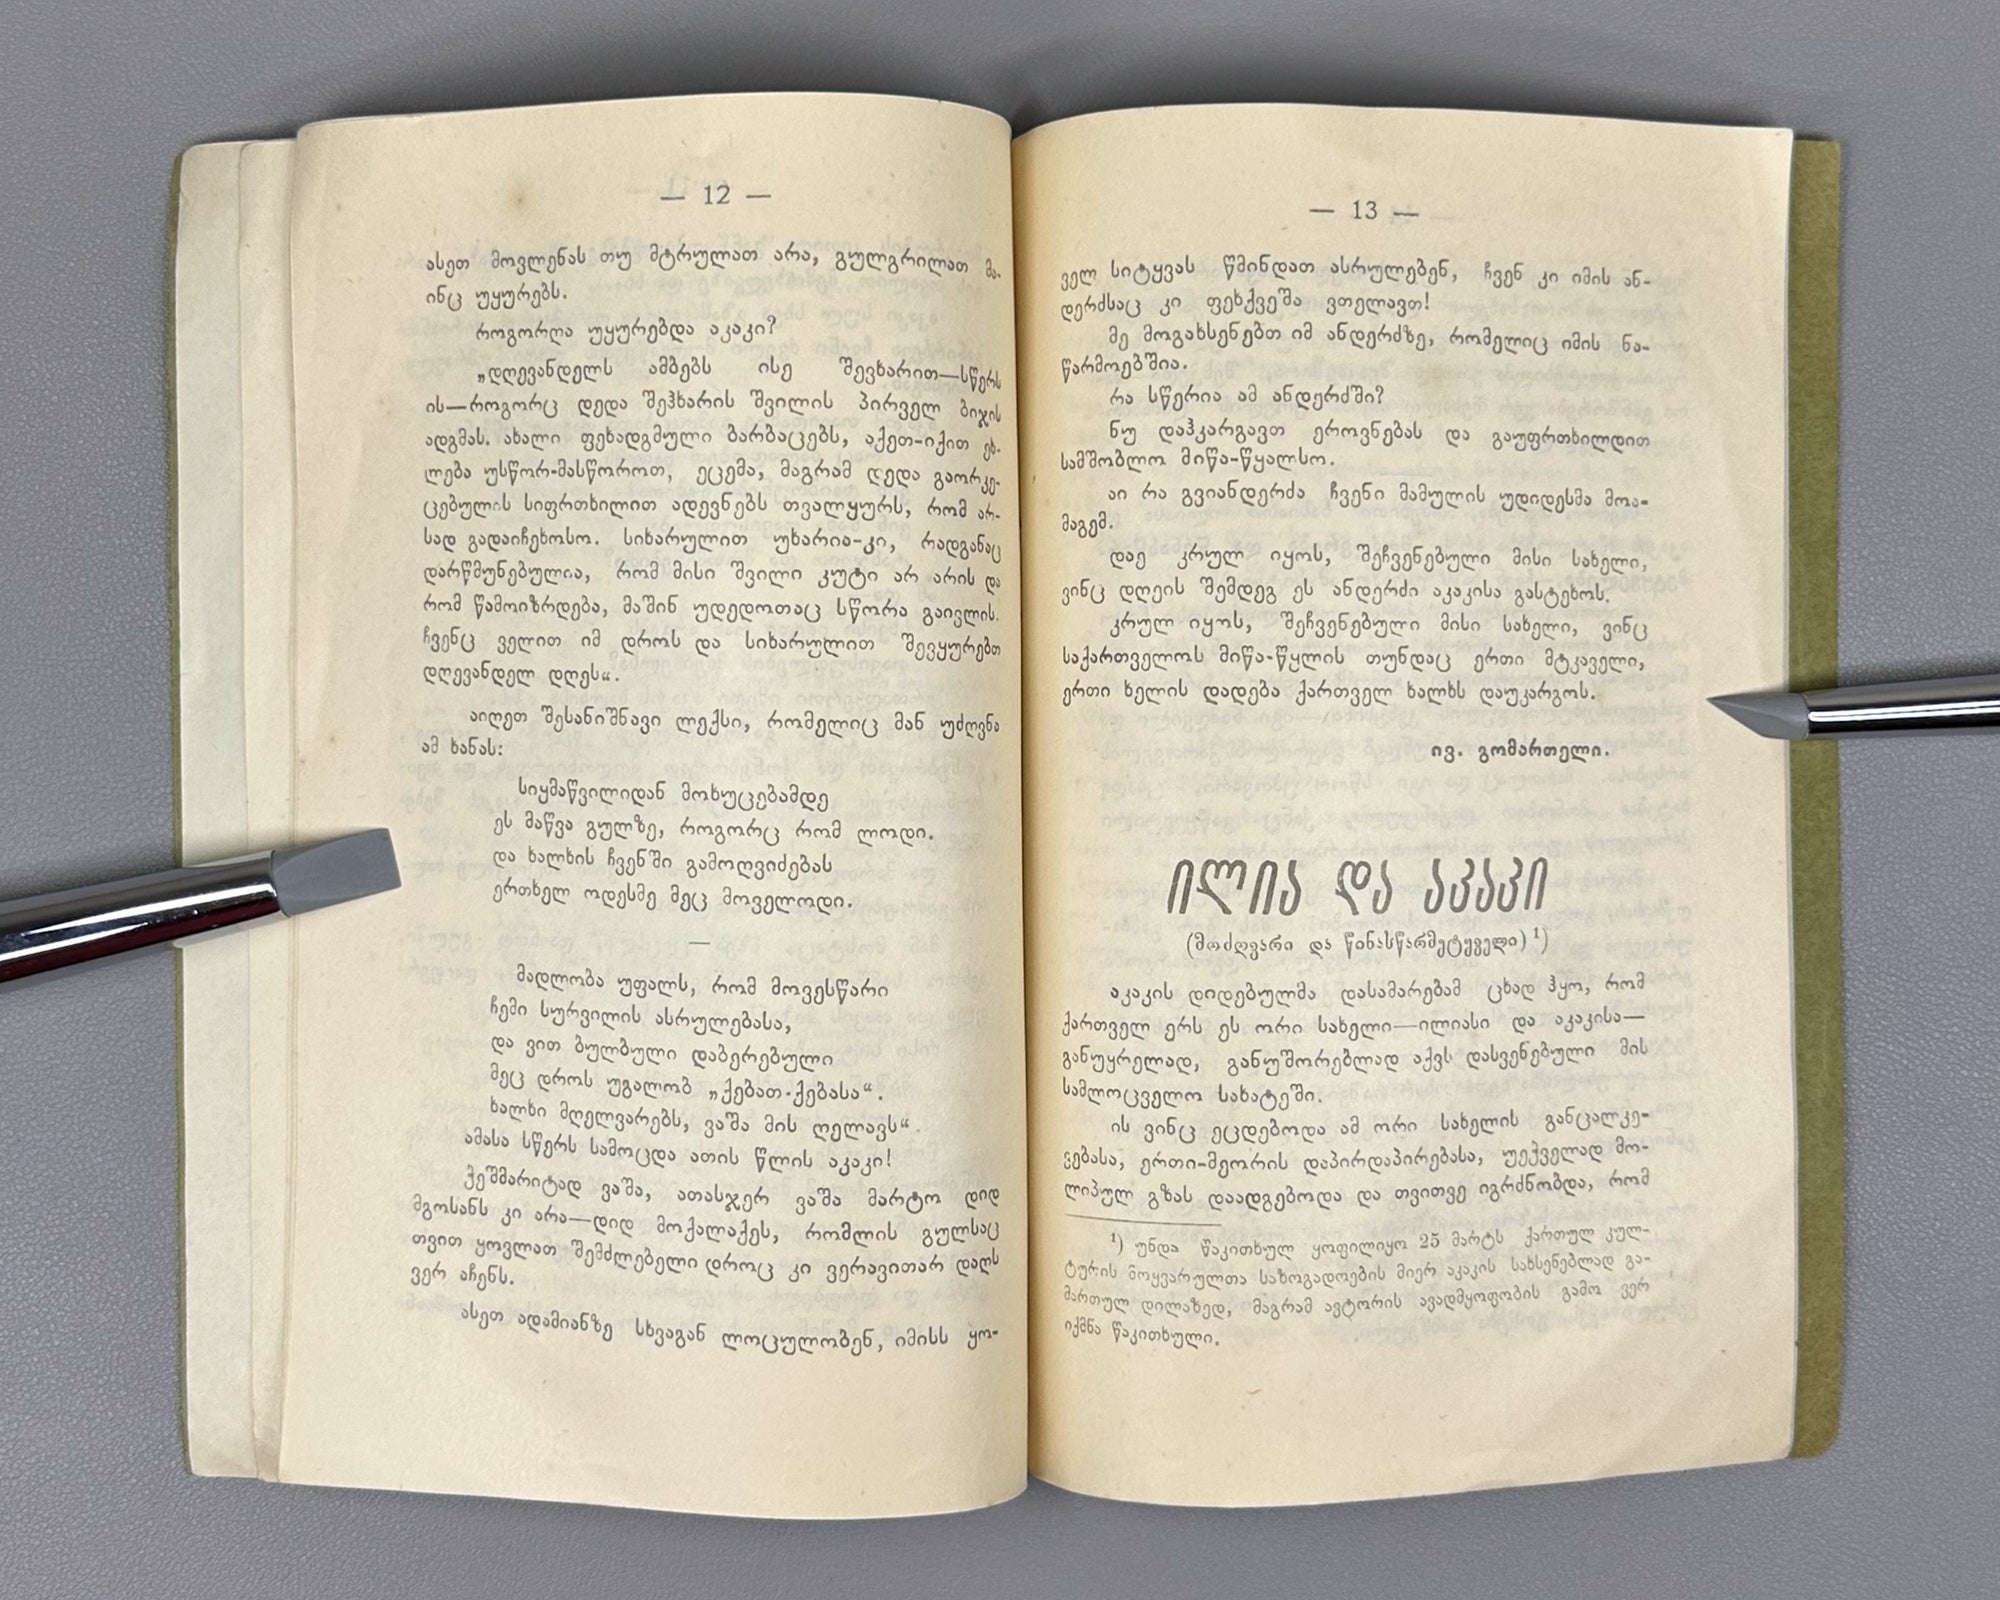 — 12 —
ასეთ მოვლენას თუ მტრულათ არა, გულგრილათ მა-
ინც უყურებს.
როგორღა უყურებდა აკაკი?
„დღევანდელს ამბებს ისე შევხარით—სწერს
ის—როგორც დედა შეჰხარის შვილის პირველ ბიჯის
ადგმას. ახალი ფეხადგმული ბარბაცებს, აქეთ-იქით ეხ-
ლება უსწორ-მასწოროთ, ეცემა, მაგრამ დედა გაორკე-
ცებულის სიფრთხილით ადევნებს თვალყურს, რომ არ-
სად გადაიჩეხოსო. სიხარულით უხარია-კი, რადგანაც
დარწმუნებულია, რომ მისი შვილი კუტი არ არის და
რომ წამოიზრდება, მაშინ უდედოთაც სწორა გაივლის.
ჩვენც ველით იმ დროს და სიხარულით შევყურებთ
დღევანდელ დღეს“.
აიღეთ შესანიშნავი ლექსი, რომელიც მან უძღვნა
ამ ხანას:
სიყმაწვილიდან მოხუცებამდე
ეს მაწვა გულზე, როგორც რომ ლოდი.
და ხალხის ჩვენში გამოღვიძებას
ერთხელ ოდესმე მეც მოველოდი.
—
მადლობა უფალს, რომ მოვესწარი
ჩემი სურვილის ასრულებასა,
და ვით ბულბული დაბერებული
მეც დროს უგალობ „ქებათ-ქებასა“.
ხალხი მღელვარებს, ვაშა მის ღელავს“.
ამასა სწერს სამოცდა ათის წლის აკაკი!
ჭეშმარიტად ვაშა, ათასჯერ ვაშა მარტო დიდ
მგოსანს კი არა—დიდ მოქალაქეს, რომლის გულსაც
თვით ყოვლათ შემძლებელი დროც კი ვერავითარ დაღს
ვერ აჩენს.
ასეთ ადამიანზე სხვაგან ლოცულობენ, იმისს ყო-
— 13 —
ველ სიტყვას წმინდათ ასრულებენ, ჩვენ კი იმის ან-
დერძსაც კი ფეხქვეშა ვთელავთ!
მე მოგახსენებთ იმ ანდერძზე, რომელიც იმის ნა-
წარმოებშია.
რა სწერია ამ ანდერძში?
ნუ დაჰკარგავთ ეროვნებას და გაუფრთხილდით
სამშობლო მიწა-წყალსო.
აი რა გვიანდერძა ჩვენი მამულის უდიდესმა მოა-
მაგემ.
დაე კრულ იყოს, შეჩვენებული მისი სახელი,
ვინც დღეის შემდეგ ეს ანდერძი აკაკისა გასტეხოს.
კრულ იყოს, შეჩვენებული მისი სახელი, ვინც
საქართველოს მიწა-წყლის თუნდაც ერთი მტკაველი,
ერთი ხელის დადება ქართველ ხალხს დაუკარგოს.
ივ. გომართელი.
ილია და აკაკი
(მოძღვარი და წინასწარმეტყველი) ¹)
აკაკის დიდებულმა დასამარებამ ცხად ჰყო, რომ
ქართველ ერს ეს ორი სახელი—ილიასი და აკაკისა—
განუყრელად, განუშორებლად აქვს დასვენებული მის
სამლოცველო სახატეში.
ის ვინც ეცდებოდა ამ ორი სახელის განცალკე-
ვებასა, ერთი-მეორის დაპირდაპირებასა, უეჭველად მო-
ლიპულ გზას დაადგებოდა და თვითვე იგრძნობდა, რომ
¹) უნდა წაკითხულ ყოფილიყო 25 მარტს ქართულ კულ-
ტურის მოყვარულთა საზოგადოების მიერ აკაკის სახსენებლად გა-
მართულ დილაზედ, მაგრამ ავტორის ავადმყოფობის გამო ვერ
იქმნა წაკითხული.